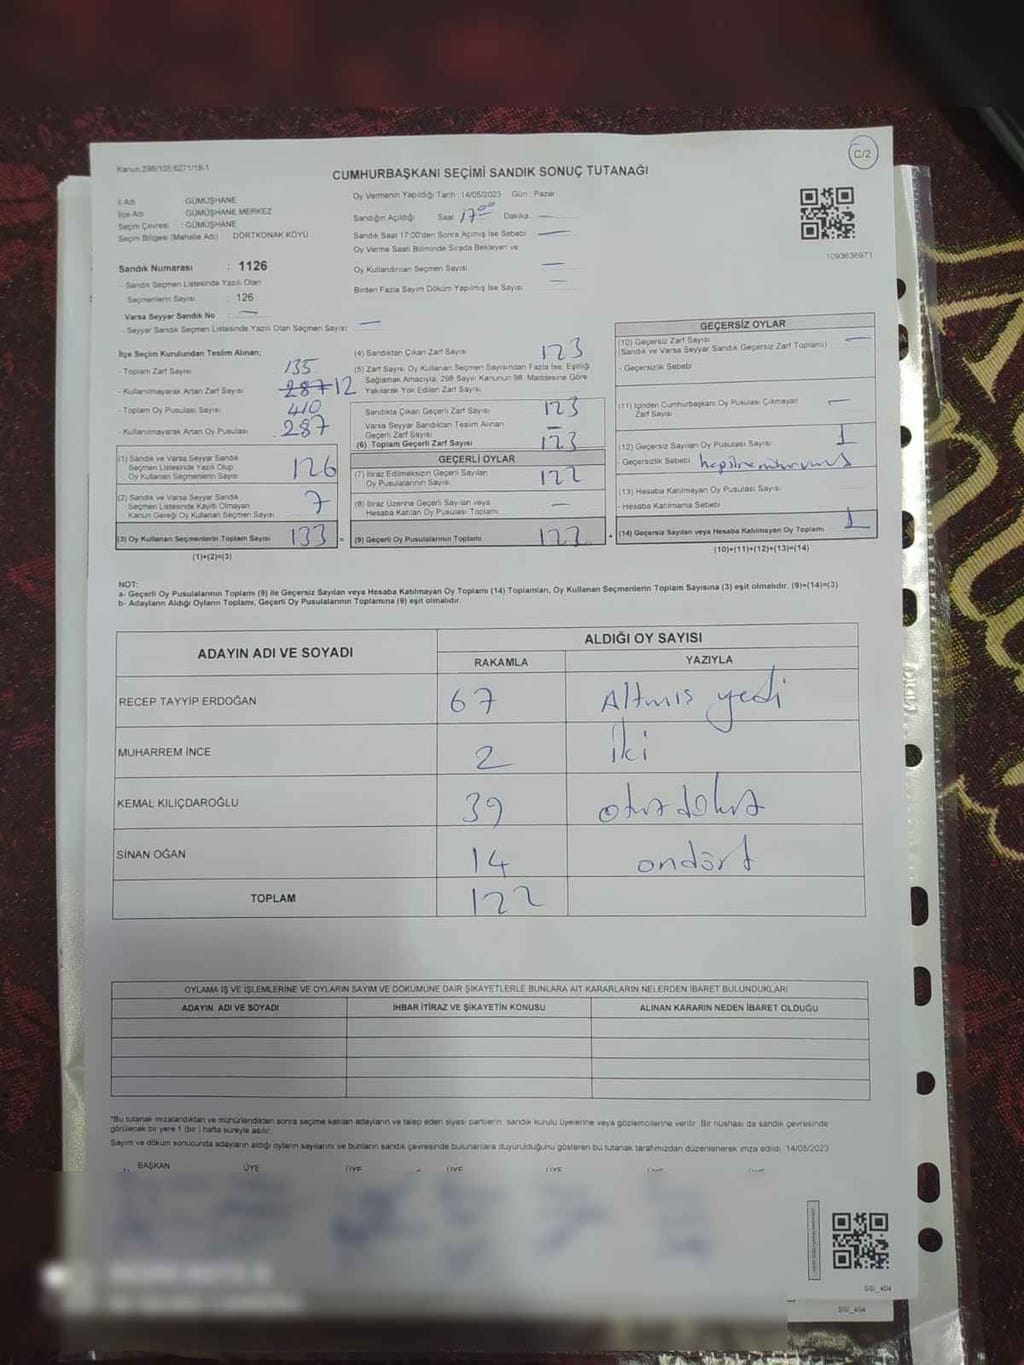 Kanun:298/105;6271/18-1
C/2
CUMHURBAŞKANI SEÇİMİ SANDIK SONUÇ TUTANAĞI
İl Adı : GÜMÜŞHANE
İlçe Adı : GÜMÜŞHANE MERKEZ
Seçim Çevresi : GÜMÜŞHANE
Seçim Bölgesi (Mahalle Adı) : DÖRTKONAK KÖYÜ
Sandık Numarası : 1126
- Sandık Seçmen Listesinde Yazılı Olan
Seçmenlerin Sayısı : 126
Varsa Seyyar Sandık No : —
- Seyyar Sandık Seçmen Listesinde Yazılı Olan Seçmen Sayısı: —
Oy Vermenin Yapıldığı Tarih : 14/05/2023 Gün : Pazar
Sandığın Açıldığı Saat 17 00 Dakika : —
Sandık Saat 17:00'den Sonra Açılmış İse Sebebi —
Oy Verme Saati Bitiminde Sırada Bekleyen ve
Oy Kullandırılan Seçmen Sayısı —
Birden Fazla Sayım Döküm Yapılmış İse Sayısı —
1093636971
İlçe Seçim Kurulundan Teslim Alınan;
- Toplam Zarf Sayısı 135
- Kullanılmayarak Artan Zarf Sayısı 287 12
- Toplam Oy Pusulası Sayısı 410
- Kullanılmayarak Artan Oy Pusulası 287
(1) Sandık ve Varsa Seyyar Sandık
Seçmen Listesinde Yazılı Olup
Oy Kullanan Seçmenlerin Sayısı 126
(2) Sandık ve Varsa Seyyar Sandık
Seçmen Listesinde Kayıtlı Olmayan
Kanun Gereği Oy Kullanan Seçmen Sayısı 7
(3) Oy Kullanan Seçmenlerin Toplam Sayısı 133 =
(1)+(2)=(3)
(4) Sandıktan Çıkan Zarf Sayısı 123
(5) Zarf Sayısı Oy Kullanan Seçmen Sayısından Fazla İse, Eşitliği
Sağlamak Amacıyla, 298 Sayılı Kanunun 98. Maddesine Göre
Yakılarak Yok Edilen Zarf Sayısı
Sandıkta Çıkan Geçerli Zarf Sayısı 123
Varsa Seyyar Sandıktan Teslim Alınan
Geçerli Zarf Sayısı —
(6) Toplam Geçerli Zarf Sayısı 123
GEÇERLİ OYLAR
(7) İtiraz Edilmeksizin Geçerli Sayılan
Oy Pusulasının Sayısı 122
(8) İtiraz Üzerine Geçerli Sayılan veya
Hesaba Katılan Oy Pusulası Toplamı —
(9) Geçerli Oy Pusulalarının Toplamı 122 +
GEÇERSİZ OYLAR
(10) Geçersiz Zarf Sayısı —
(Sandık ve Varsa Seyyar Sandık Geçersiz Zarf Toplamı)
- Geçersizlik Sebebi
(11) İçinden Cumhurbaşkanı Oy Pusulası Çıkmayan
Zarf Sayısı —
(12) Geçersiz Sayılan Oy Pusulası Sayısı 1
- Geçersizlik Sebebi
(13) Hesaba Katılmayan Oy Pusulası Sayısı
- Hesaba Katılmama Sebebi
(14) Geçersiz Sayılan veya Hesaba Katılmayan Oy Toplamı 1
(10)+(11)+(12)+(13)=(14)
NOT:
a- Geçerli Oy Pusulalarının Toplamı (9) ile Geçersiz Sayılan veya Hesaba Katılmayan Oy Toplamı (14) Toplamları, Oy Kullanan Seçmenlerin Toplam Sayısına (3) eşit olmalıdır. (9)+(14)=(3)
b- Adayların Aldığı Oyların Toplamı, Geçerli Oy Pusulalarının Toplamına (9) eşit olmalıdır.
ADAYIN ADI VE SOYADI
ALDIĞI OY SAYISI
RAKAMLA YAZIYLA
RECEP TAYYİP ERDOĞAN 67 Altmış yedi
MUHARREM İNCE 2 İki
KEMAL KILIÇDAROĞLU 39 otuz dokuz
SİNAN OĞAN 14 ondört
TOPLAM 122
OYLAMA İŞ VE İŞLEMLERİNE VE OYLARIN SAYIM VE DÖKÜMÜNE DAİR ŞİKAYETLERLE BUNLARA AİT KARARLARIN NELERDEN İBARET BULUNDUKLARI
ADAYIN ADI VE SOYADI İHBAR İTİRAZ VE ŞİKAYETİN KONUSU ALINAN KARARIN NEDEN İBARET OLDUĞU
*Bu tutanak imzalandıktan ve mühürlendikten sonra seçime katılan adayların ve talep eden siyasi partilerin sandık kurulu üyelerine veya gözlemcilerine verilir. Bir nüshası da sandık çevresinde
görülecek bir yere 1 (bir) hafta süreyle asılır.
Sayım ve döküm sonucunda adayların aldığı oyların sayılarını ve bunların sandık çevresinde bulunanlara duyurulduğunu gösteren bu tutanak tarafımızdan düzenlenerek imza edildi. 14/05/2023
BAŞKAN ÜYE ÜYE ÜYE ÜYE ÜYE ÜYE
SGI_404
SGI_404